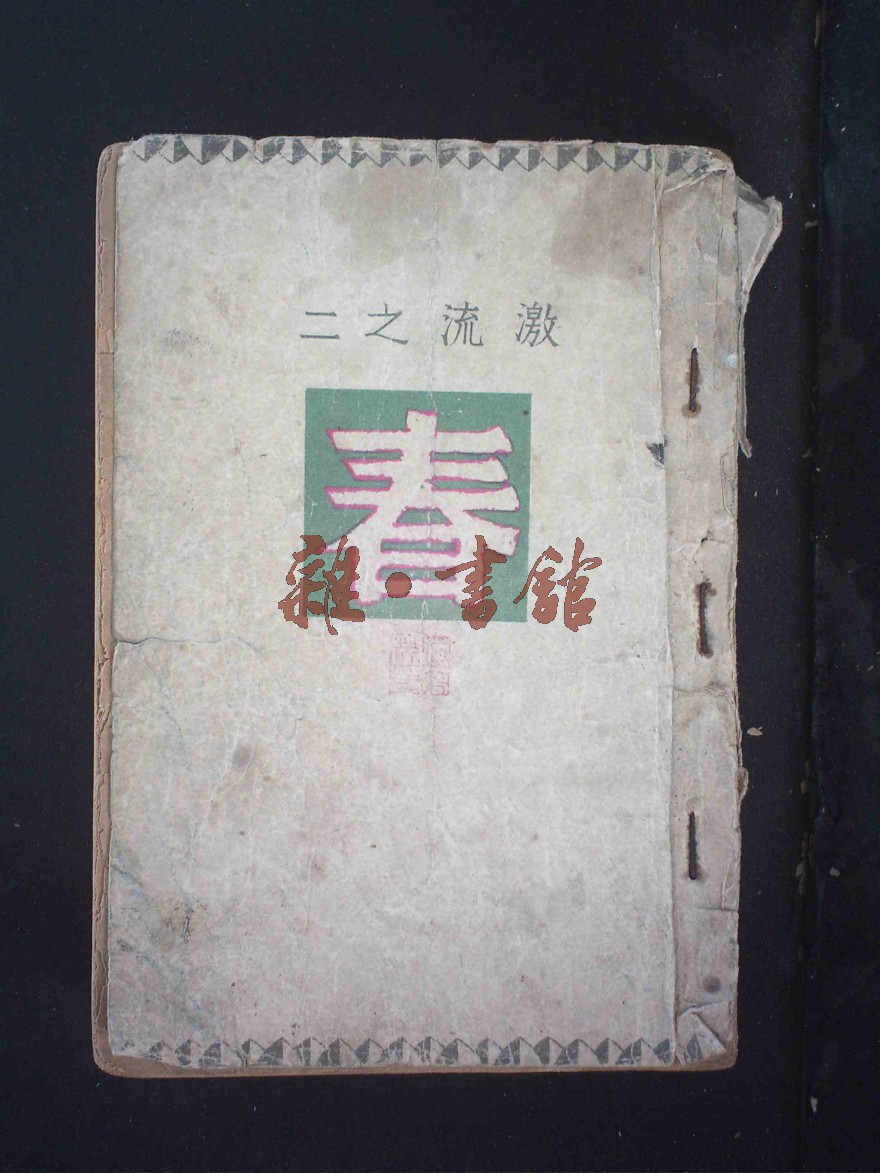 激流之二
春
雜·書館